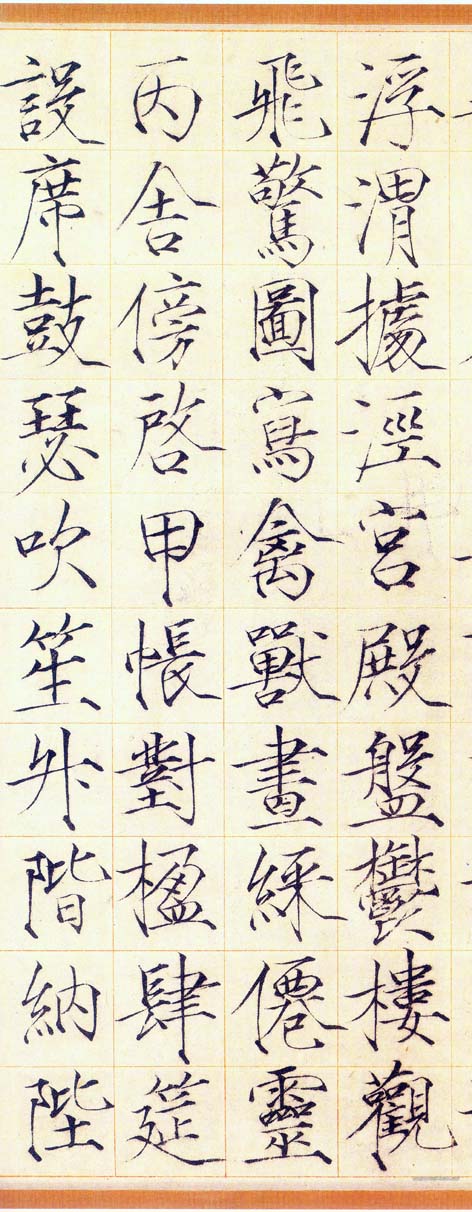 浮渭據涇宮殿盤鬱樓觀
飛驚圖寫禽獸畫綵僊靈
丙舍傍啓甲帳對楹肆筵
設席鼓瑟吹笙升階納陛